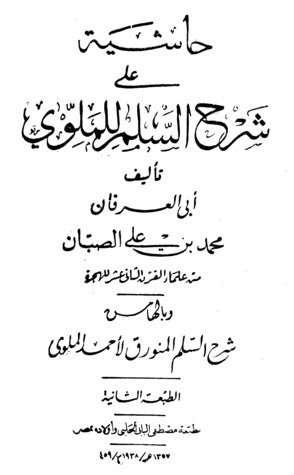 حاشية
على
شرح السلم للملوي
تأليف
أبي العرفان
محمد بن علي الصبان
من علماء القرن الثاني عشر للهجرة
وبالهامش
شرح السلم المنورق لأحمد الملوى
الطبعة الثانية
مطبعة مصطفى البابي الحلبي وأولاده بمصر
١٣٥٧ هـ / ١٩٣٨ م / ٤٥٩